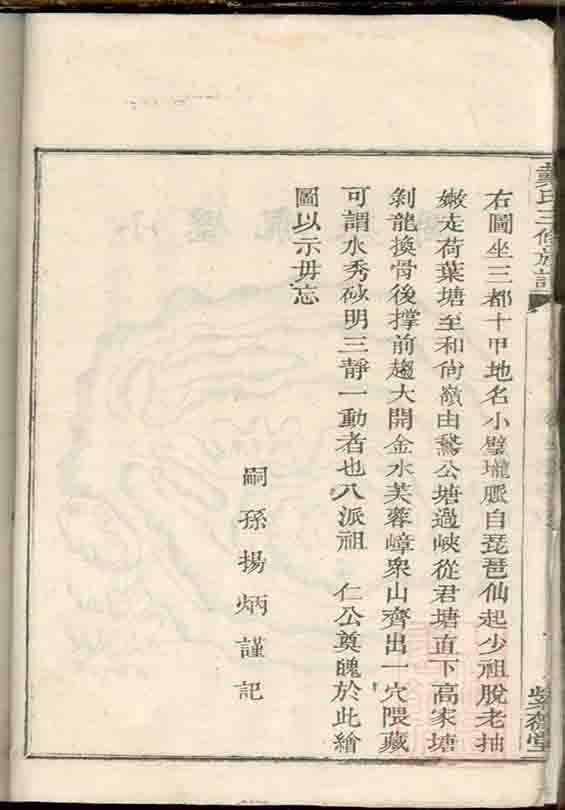 戴氏三修族譜
紫荷堂
右圖坐三都十甲地名小壁壠脈自琵琶仙起少祖脫老抽
嫩走荷葉塘至和尙嶺由鵞公塘過峽從君塘直下高家塘
剝龍換骨後撐前趨大開金水芙蓉嶂衆山齊出一穴隈藏
可謂水秀砂明三靜一動者也八派祖　仁公奠魄於此繪
圖以示毋忘
嗣孫揚炳謹記